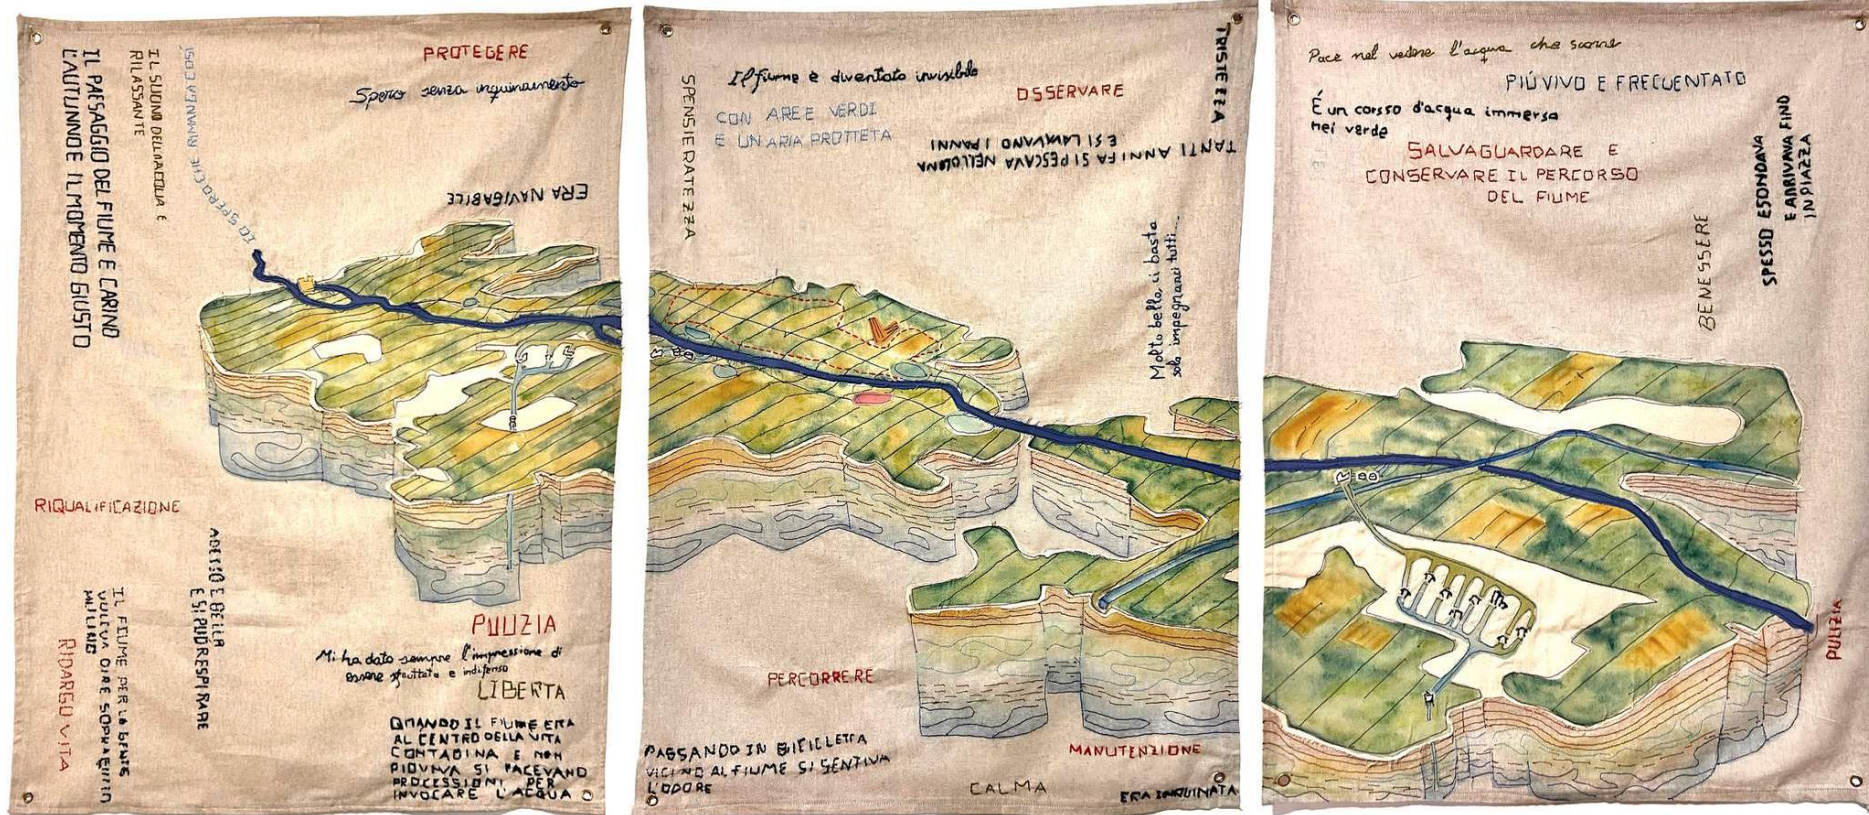 PROTEGERE
Spero senza inquinamento
IL PAESAGGIO DEL FIUME E CARINO
L'AUTUNNO E IL MOMENTO GIUSTO
IL SUONO DELL'ACQUA E
RILASSANTE
IO SPERO CHE RIMANGA COSÌ
ERA NAVIGABILE
RIQUALIFICAZIONE
ADESSO E BELLA
E SI PUÒ RESPIRARE
IL FIUME PER LA GENTE
VOLEVA DIRE
MULINO
RIDARGLI VITA
PULIZIA
Mi ha dato sempre l'impressione di
essere sfruttato e indifeso
LIBERTA
QUANDO IL FIUME ERA
AL CENTRO DELLA VITA
CONTADINA E NON
PIOVEVA SI FACEVANO
PROCESSIONI PER
INVOCARE L'ACQUA
SPENSIERATEZZA
Il fiume è diventato invisibile
CON AREE VERDI
E UN ARIA PROTTETA
OSSERVARE
TRISTEZZA
TANTI ANNI FA SI PESCAVA NELL'OLONA
E SI LAVAVANO I PANNI
Molto bello, ci basta
solo impegnarci tutti...
PERCORRERE
PASSANDO IN BICICLETTA
VICINO AL FIUME SI SENTIVA
L'ODORE
MANUTENZIONE
CALMA
ERA INQUINATA
Pace nel vedere l'acqua che scorre
PIÙ VIVO E FRECUENTATO
É un corsso d'acqua immerso
nel verde
SALVAGUARDARE E
CONSERVARE IL PERCORSO
DEL FIUME
BENESSERE
SPESSO ESONDAVA
E ARRIVAVA FINO
IN PIAZZA
PULIZIA